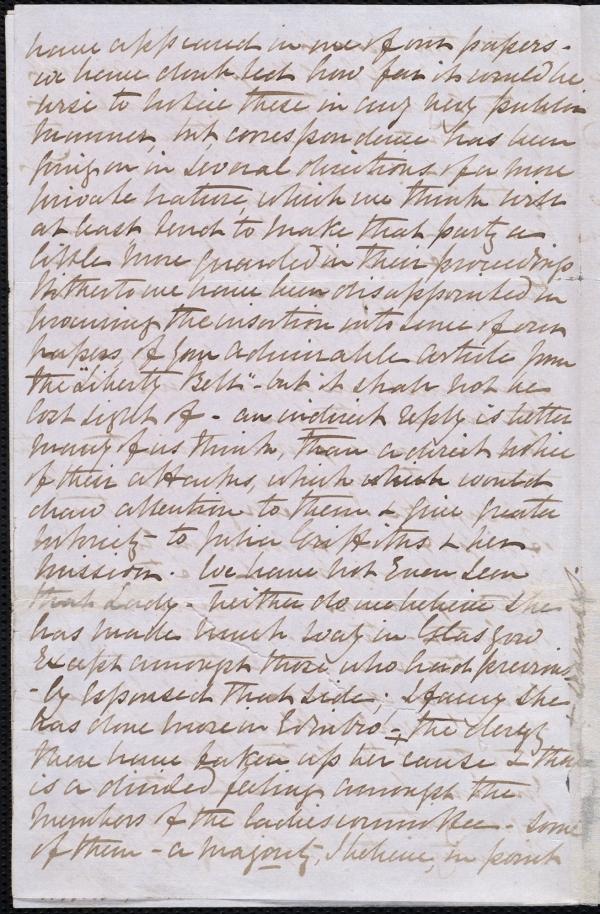 have appeared in one of our papers -
we have doubted how far it would be
wise to notice these in any very public
manner, but correspondence has been
going on in several directions of a more
private nature, which we think will
at least tend to make that party a
little more guarded in their proceedings
Hitherto we have been disappointed in
procuring the insertion into some of our
papers, of your admirable article from
the "Liberty Bell" - but it shall not be
lost sight of - an indirect reply is better
many of us think, than a direct notice
of their attacks, which which would
draw attention to them & give greater
notoriety to Julia Griffiths & her
mission. We have not even seen
that Lady - neither do we believe she
has made much way in Glasgow
except amongst those who had previous
-ly espoused that side. I fancy she
has done more in Edinbro - the clergy
there have taken up her cause & there
is a divided feeling amongst the
members of the ladies committee - some
of them - a majority, I believe, in point